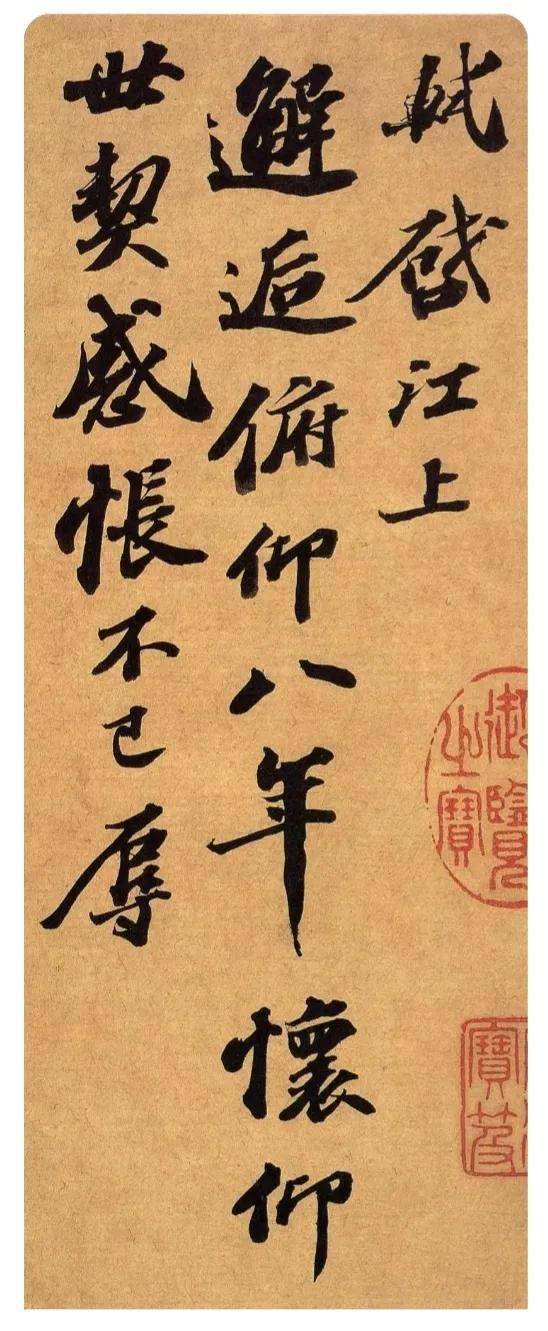 軾啓江上
邂逅俯仰八年懷仰
世契感悵不已辱
御覽之寶
寶笈